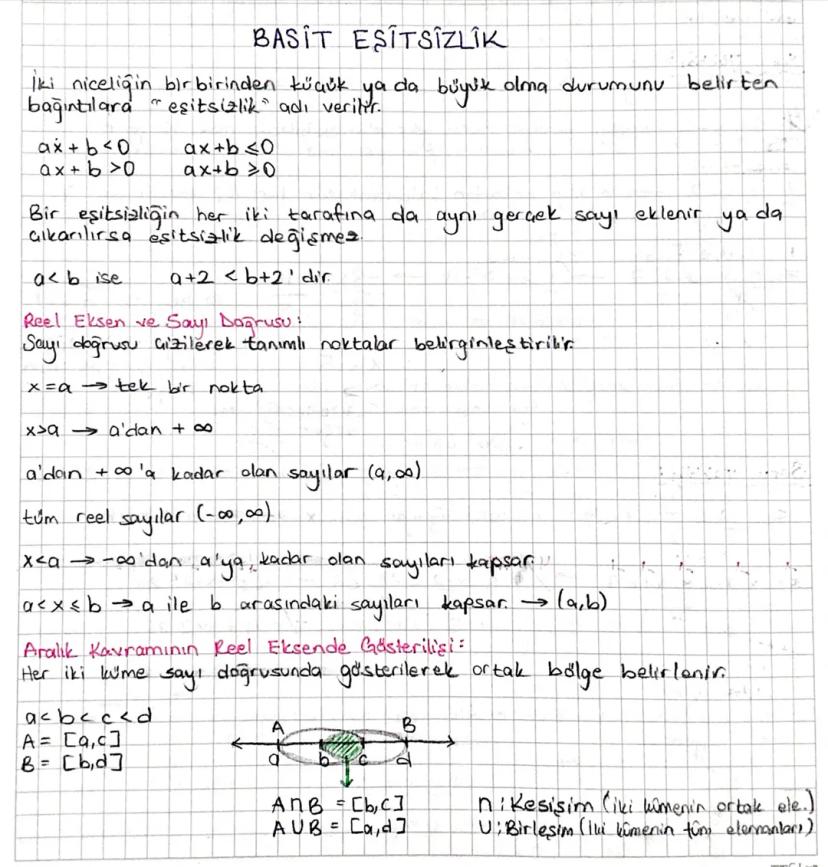 BASİT EŞİTSİZLİK
İki niceliğin birbirinden küçük ya da büyük olma durumunu belirten
bağıntılara "eşitsizlik" adı verilir.
ax + b < 0 ax+b ≤ 0
ax + b > 0 ax+b ≥ 0
Bir eşitsizliğin her iki tarafına da aynı gerçek sayı eklenir ya da
çıkarılırsa eşitsizlik değişmez.
a < b ise a+2 < b+2'dir.
Reel Eksen ve Sayı Doğrusu:
Sayı doğrusu çizilerek tanımlı noktalar belirginleştirilir.
x = a → tek bir nokta
x>a → a'dan + ∞
a'dan + ∞'a kadar olan sayılar (a,∞)
tüm reel sayılar (-∞,∞)
x<a → -∞'dan a'ya kadar olan sayıları kapsar.
a<x≤b → a ile b arasındaki sayıları kapsar. → (a,b)
Aralık Kavramının Reel Eksende Gösterilişi:
Her iki küme sayı doğrusunda gösterilerek ortak bölge belirlenir.
a<b<c<d
A = [a,c]
B = [b,d]
A B
a b c d
A∩B = [b,c] ∩: Kesişim (iki kümenin ortak ele.)
A∪B = [a,d] U: Birleşim (iki kümenin tüm elemanları)